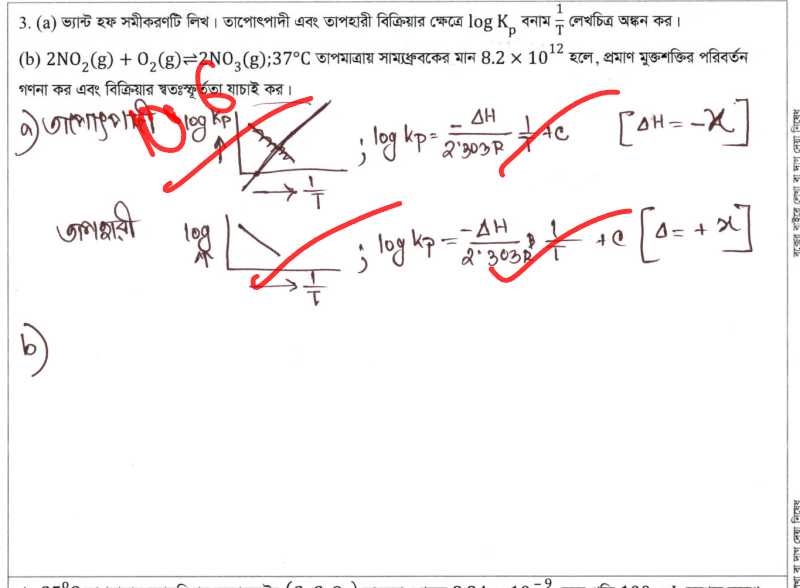 3. (a) ভ্যান্ট হফ সমীকরণটি লিখ। তাপোৎপাদী এবং তাপহারী বিক্রিয়ার ক্ষেত্রে log K_p বনাম 1/T লেখচিত্র অঙ্কন কর।
(b) 2NO₂(g) + O₂(g)⇌2NO₃(g);37°C তাপমাত্রায় সাম্যধ্রুবকের মান 8.2 × 10¹² হলে, প্রমাণ মুক্তশক্তির পরিবর্তন
গণনা কর এবং বিক্রিয়ার স্বতঃস্ফূর্ততা যাচাই কর।
6
a) তাপোৎপাদী log Kp ↑ → 1/T ; log Kp = -ΔH/2.303R 1/T + C [ΔH = -x]
তাপহারী log ↑ → 1/T ; log Kp = -ΔH/2.303R 1/T + C [Δ = + x]
b)
বক্সের বাইরে লেখা বা দাগ দেয়া নিষেধ